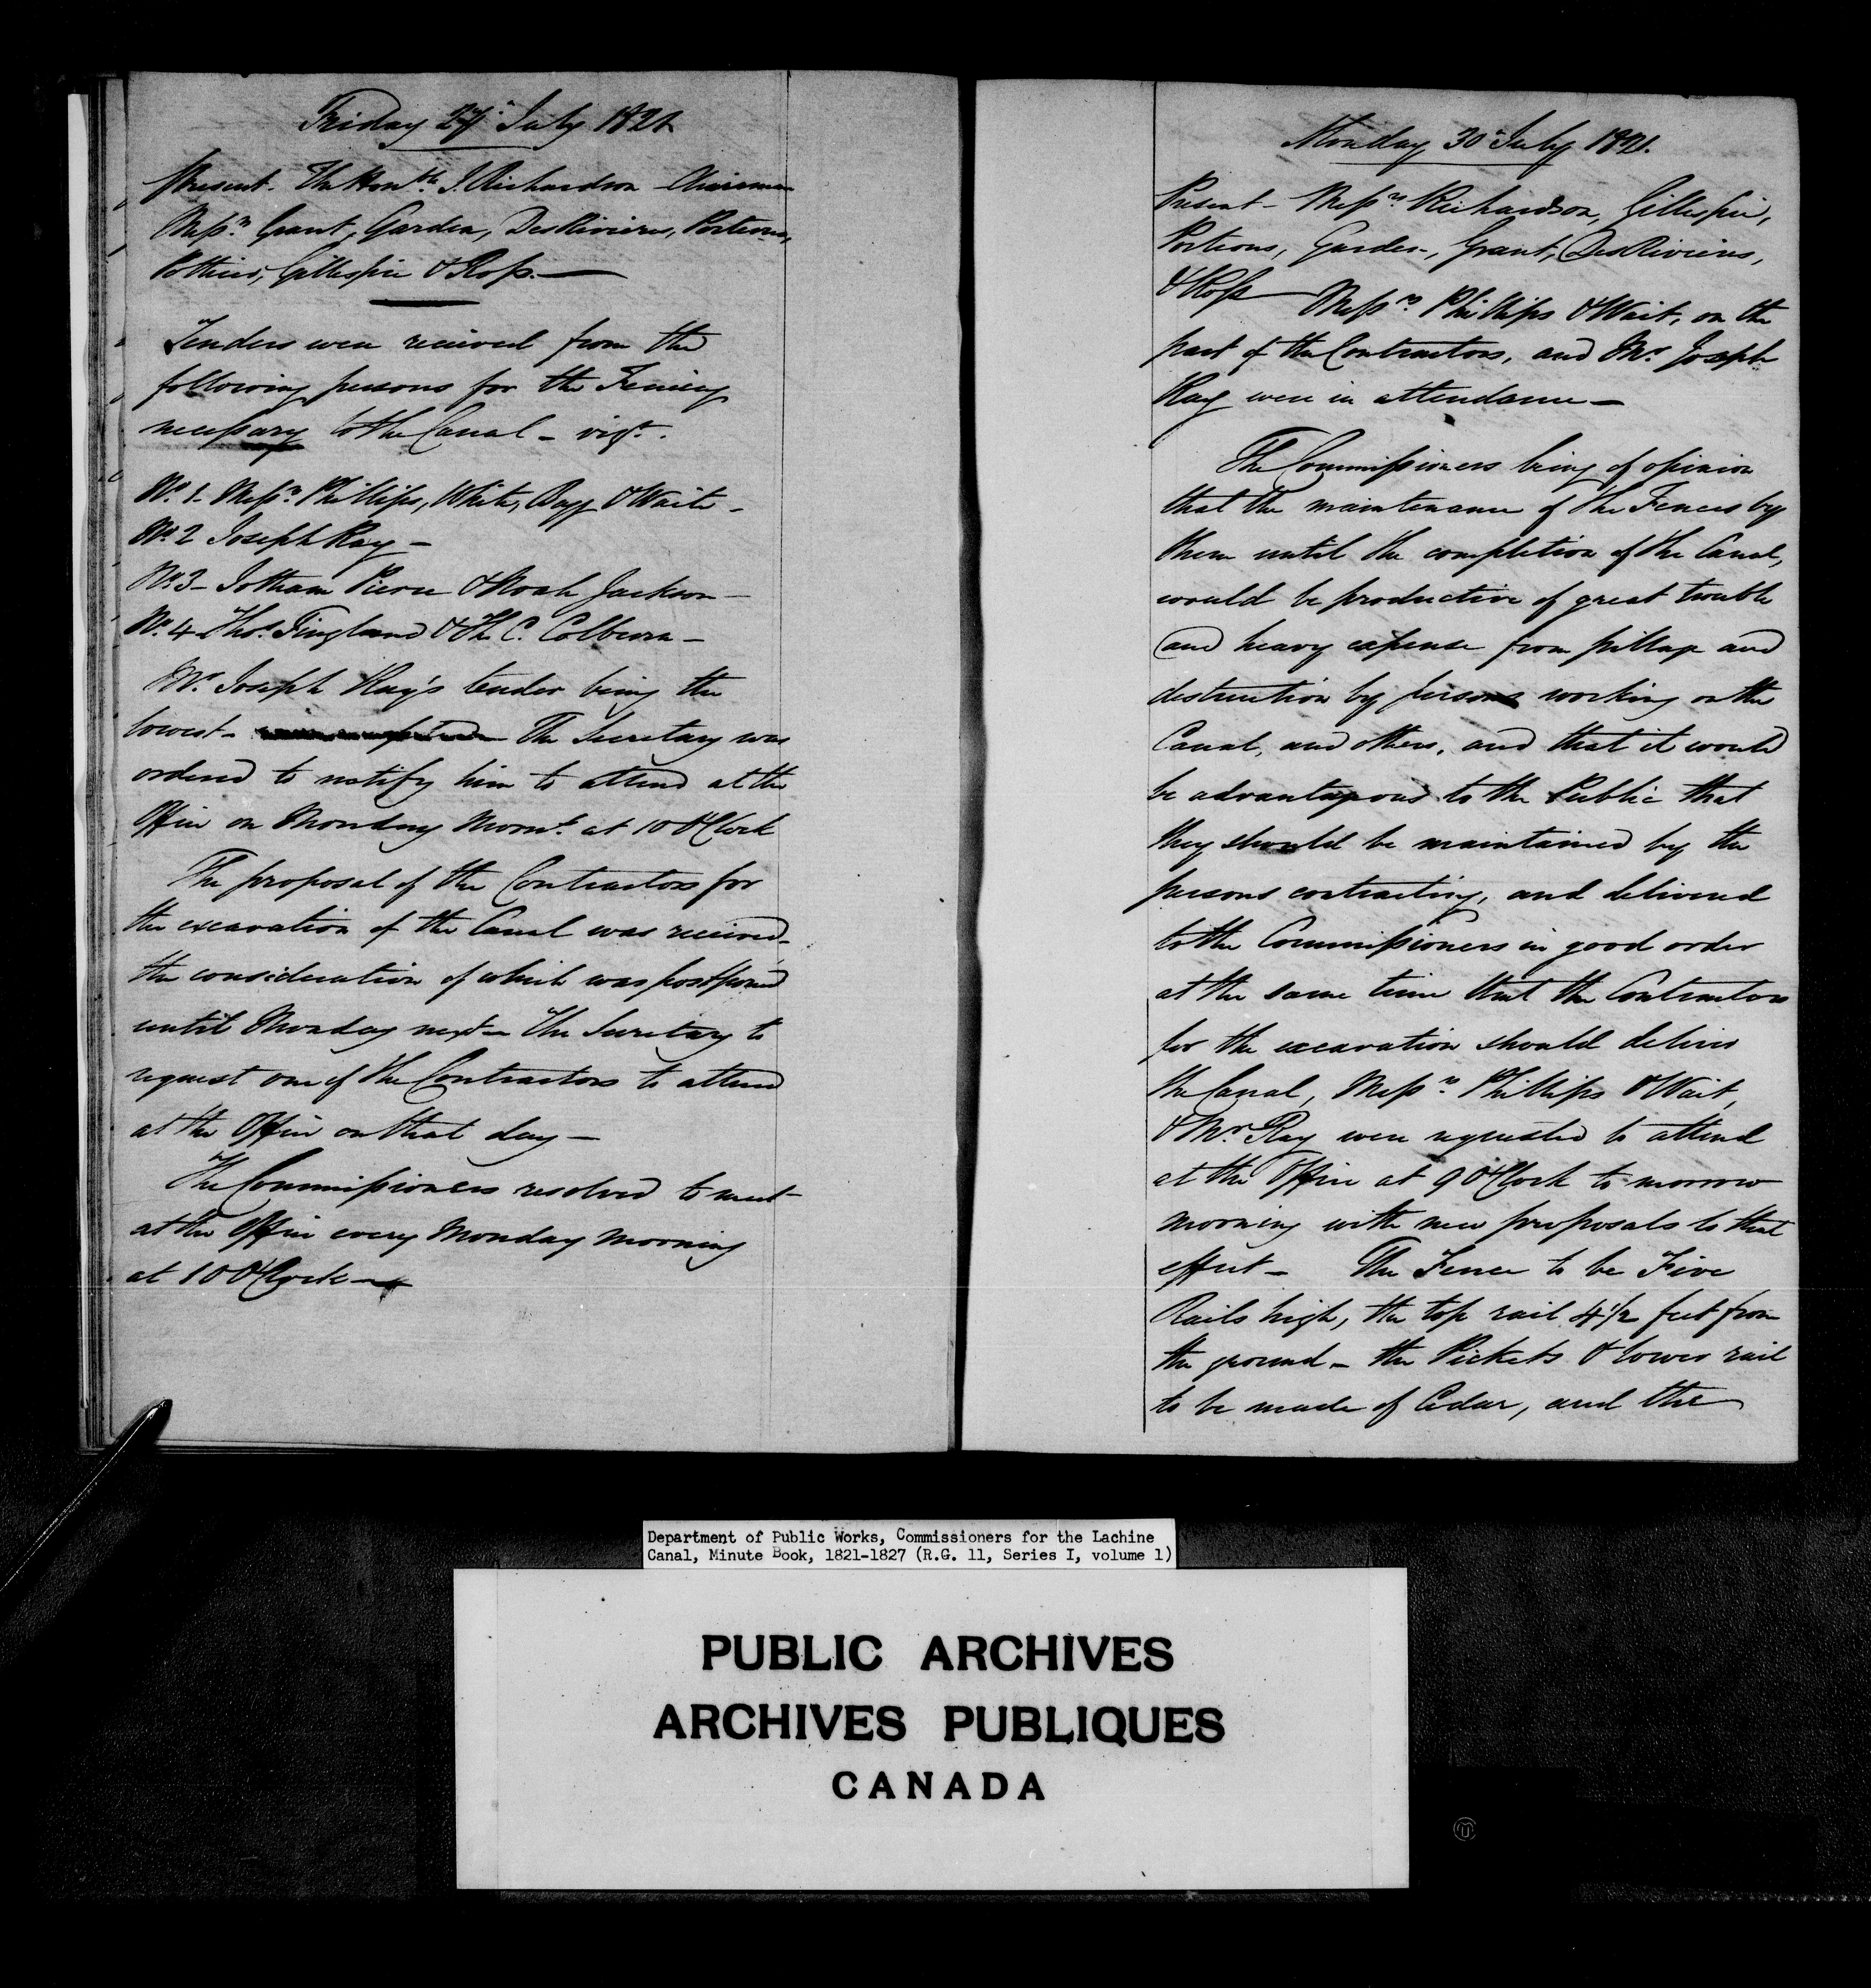 Friday 27th July 1821
Present. The Honble. J. Richardson Chairman
Messrs. Grant, Garden, DesRivieres, Porteous,
Pothier, Gillespie & Ross.
Tenders were received from the
following persons for the Fencing
necessary to the Canal - vizt.
No. 1. Messrs. Phillips, White, Bagg & Waite -
No. 2 Joseph Kay -
No. 3 - Jotham Pierce & Noah Jackson -
No. 4 Thos. Fingland & Th. C. Colburn -
Mr. Joseph Kay's tender being the
lowest - The Secretary was
ordered to notify him to attend at the
Office on Monday Morng. at 10 OClock
The proposal of the Contractors for
the excavation of the Canal was received,
the consideration of which was postponed
until Monday next - The Secretary to
request one of the Contractors to attend
at the Office on that day -
The Commissioners resolved to meet
at the Office every Monday morning
at 10 OClock -
Monday 30th July 1821.
Present - Messrs Richardson, Gillespie,
Porteous, Garden, Grant, DesRivieres,
& Ross Messrs. Phillips & Wait, on the
part of the Contractors, and Mr. Joseph
Kay were in attendance -
The Commissioners being of opinion
that the maintenance of the Fences by
them until the completion of the Canal,
would be productive of great trouble
and heavy expense from pillage and
destruction by persons working on the
Canal, and others, and that it would
be advantageous to the Public that
they should be maintained by the
persons contracting, and delivered
to the Commissioners in good order
at the same time that the Contractors
for the excavation should deliver
the Canal, Messrs. Phillips & Wait,
& Mr. Kay were requested to attend
at the Office at 9 OClock to morrow
morning with new proposals to that
effect - The Fence to be Five
Rails high, the top rail 4 1/2 feet from
the ground - the Pickets & lower rail
to be made of Cedar, and the
Department of Public Works, Commissioners for the Lachine
Canal, Minute Book, 1821-1827 (R.G. 11, Series I, volume 1)
PUBLIC ARCHIVES
ARCHIVES PUBLIQUES
CANADA